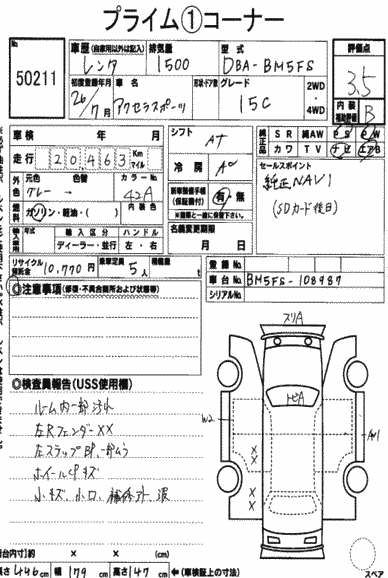 プライム①コーナー
50211
車歴 (自家用以外は記入) レンタ
排気量 1500
型式 DBA-BM5FS
評価点 3.5
初度登録年月 26/7月
車名 アクセラスポーツ
形状・ドア数
グレード 15C
2WD・4WD
内装補助評価 B
車検 年 月
シフト AT
純正品 SR 純AW PS PW
カワ TV ナビ エアB
走行 20463 Km マイル
冷房
セールスポイント
純正NAVI
(SDカード後日)
外色 元色 グレー → 色替
カラー No. 42A
新車整備手帳 (保証書付) 有・無
※書類と一緒に保管下さい。
燃料 ガソリン・軽油・( )
内装色
輸入車用 年式 輸入区分 ハンドル
ディーラー・並行 左・右
名義変更期限
月 日
リサイクル預託金 10,770円
乗車定員 5人
積載量 t
登録No.
車台No. BM5FS-108987
シリアルNo.
◎注意事項(修復・不具合箇所および状態等)
スリA
トビA
W2
◎検査員報告(USS使用欄)
ルーム内一部汚れ
左Rフェンダー XX
ホイールキズ
小キズ、小凹、補修跡、波
荷台内寸)約 × × (cm)
長さ 446cm 幅 179cm 高さ 147cm ←(車検証上の寸法)
スペア